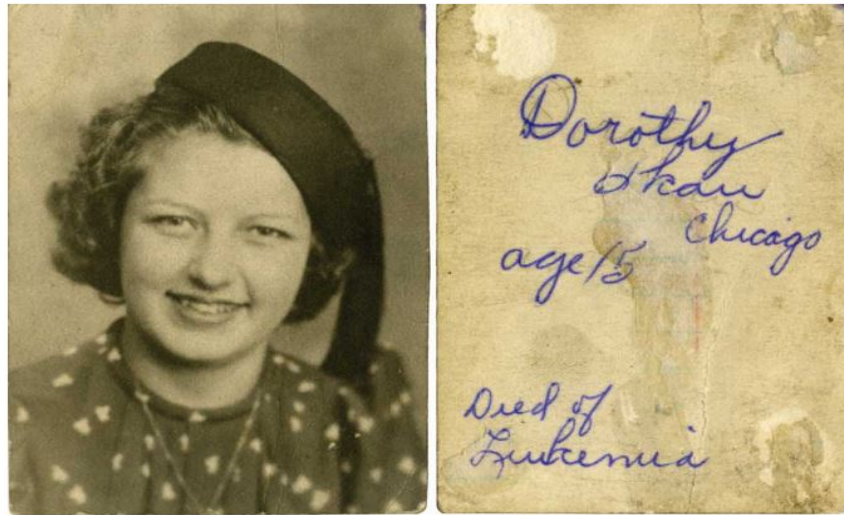 Dorothy
Skau
Chicago
age 15
Died of
Leukemia